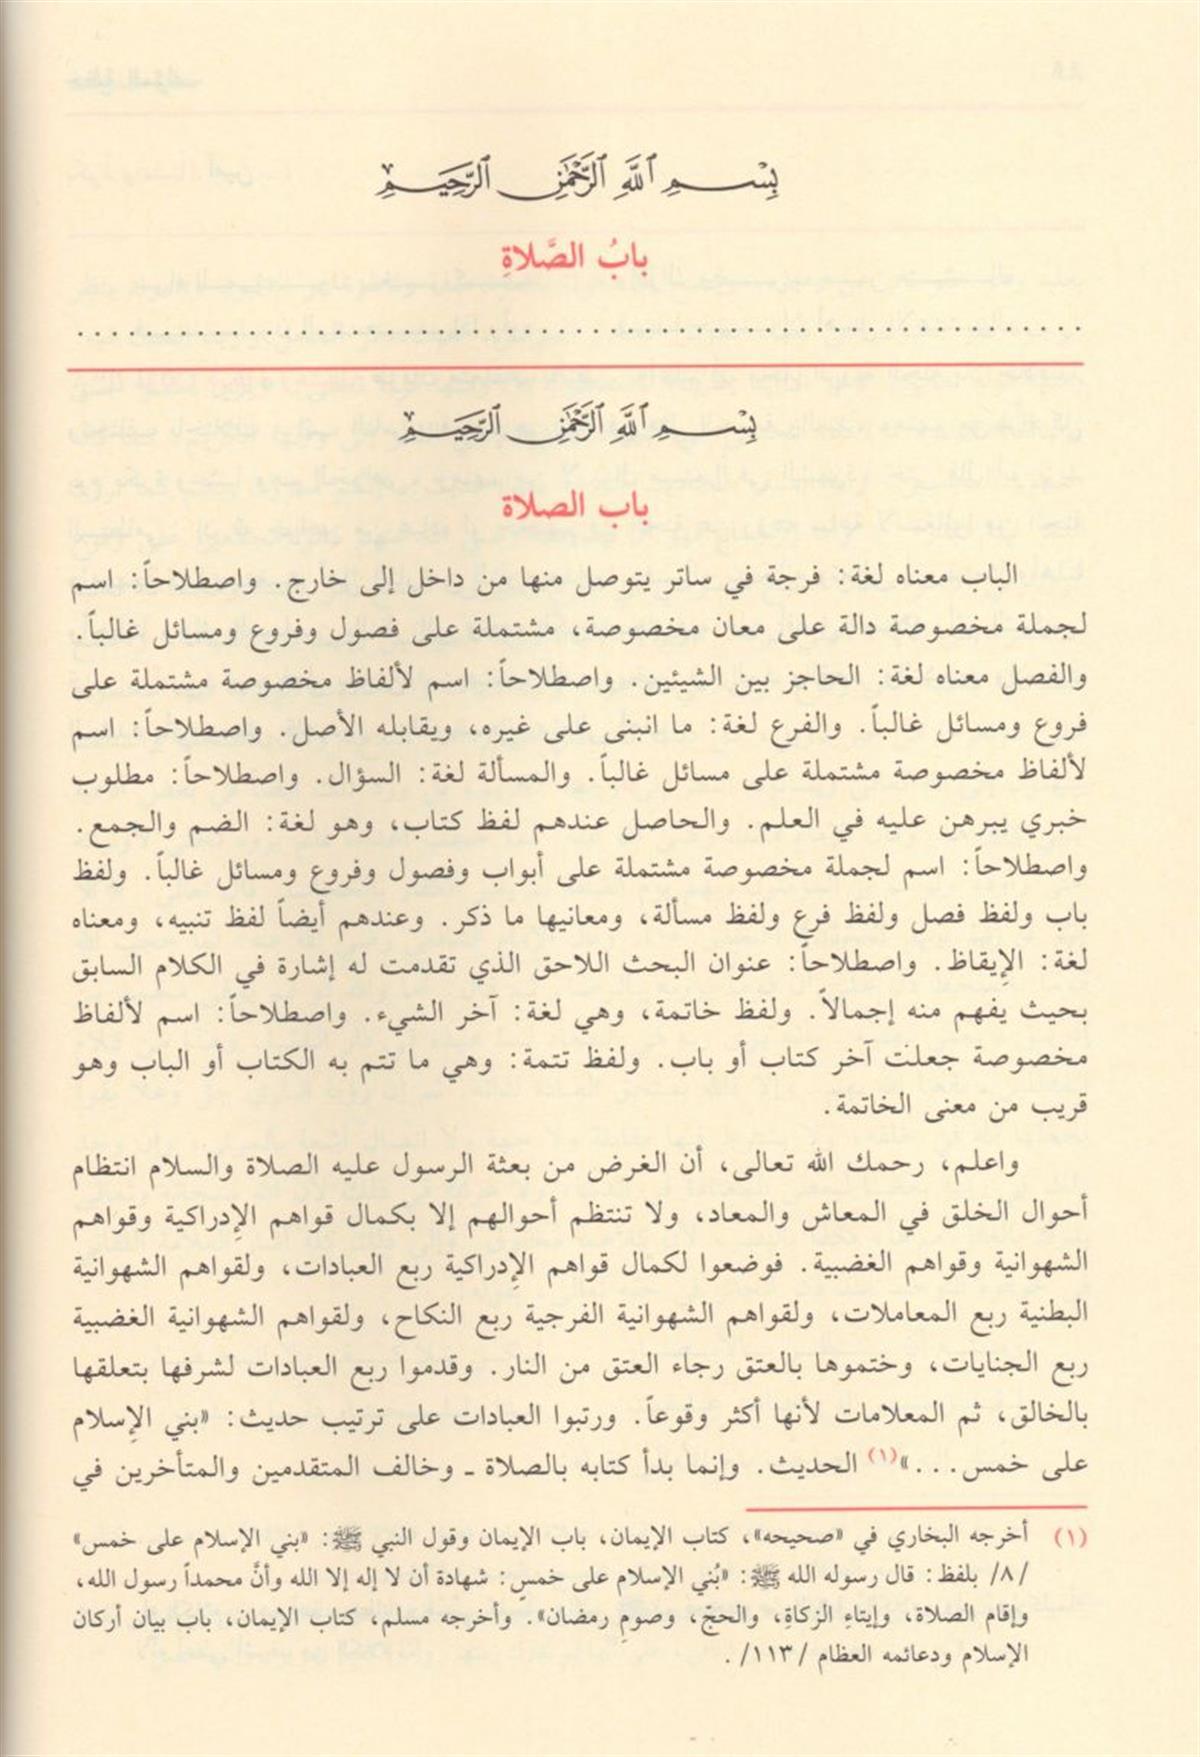 بِسْمِ ٱللَّهِ ٱلرَّحْمَٰنِ ٱلرَّحِيمِ
بابُ الصَّلاةِ
. . . . . . . . . . . . . . . . . . . . . . . . . . . . . . . . . . . . . . . . . . . . . . . . . . . . . . .
بِسْمِ ٱللَّهِ ٱلرَّحْمَٰنِ ٱلرَّحِيمِ
باب الصلاة
الباب معناه لغة: فرجة في ساتر يتوصل منها من داخل إلى خارج. واصطلاحاً: اسم
لجملة مخصوصة دالة على معان مخصوصة، مشتملة على فصول وفروع ومسائل غالباً.
والفصل معناه لغة: الحاجز بين الشيئين. واصطلاحاً: اسم لألفاظ مخصوصة مشتملة على
فروع ومسائل غالباً. والفرع لغة: ما انبنى على غيره، ويقابله الأصل. واصطلاحاً: اسم
لألفاظ مخصوصة مشتملة على مسائل غالباً. والمسألة لغة: السؤال. واصطلاحاً: مطلوب
خبري يبرهن عليه في العلم. والحاصل عندهم لفظ كتاب، وهو لغة: الضم والجمع.
واصطلاحاً: اسم لجملة مخصوصة مشتملة على أبواب وفصول وفروع ومسائل غالباً. ولفظ
باب ولفظ فصل ولفظ فرع ولفظ مسألة، ومعانيها ما ذكر. وعندهم أيضاً لفظ تنبيه، ومعناه
لغة: الإِيقاظ. واصطلاحاً: عنوان البحث اللاحق الذي تقدمت له إشارة في الكلام السابق
بحيث يفهم منه إجمالاً. ولفظ خاتمة، وهي لغة: آخر الشيء. واصطلاحاً: اسم لألفاظ
مخصوصة جعلت آخر كتاب أو باب. ولفظ تتمة: وهي ما تتم به الكتاب أو الباب وهو
قريب من معنى الخاتمة.
واعلم، رحمك الله تعالى، أن الغرض من بعثة الرسول عليه الصلاة والسلام انتظام
أحوال الخلق في المعاش والمعاد، ولا تنتظم أحوالهم إلا بكمال قواهم الإِدراكية وقواهم
الشهوانية وقواهم الغضبية. فوضعوا لكمال قواهم الإِدراكية ربع العبادات، ولقواهم الشهوانية
البطنية ربع المعاملات، ولقواهم الشهوانية الفرجية ربع النكاح، ولقواهم الشهوانية الغضبية
ربع الجنايات، وختموها بالعتق رجاء العتق من النار. وقدموا ربع العبادات لشرفها بتعلقها
بالخالق، ثم المعلامات لأنها أكثر وقوعاً. ورتبوا العبادات على ترتيب حديث: «بني الإِسلام
على خمس...»(١) الحديث. وإنما بدأ كتابه بالصلاة ـ وخالف المتقدمين والمتأخرين في
(١) أخرجه البخاري في «صحيحه»، كتاب الإيمان، باب الإيمان وقول النبي ﷺ: «بني الإسلام على خمس»
/٨/ بلفظ: قال رسوله الله ﷺ: «بُني الإسلام على خمسٍ: شهادة أن لا إله إلا الله وأنَّ محمداً رسول الله،
وإقام الصلاة، وإيتاءِ الزكاةِ، والحجّ، وصومِ رمضان». وأخرجه مسلم، كتاب الإيمان، باب بيان أركان
الإسلام ودعائمه العظام /١١٣/.